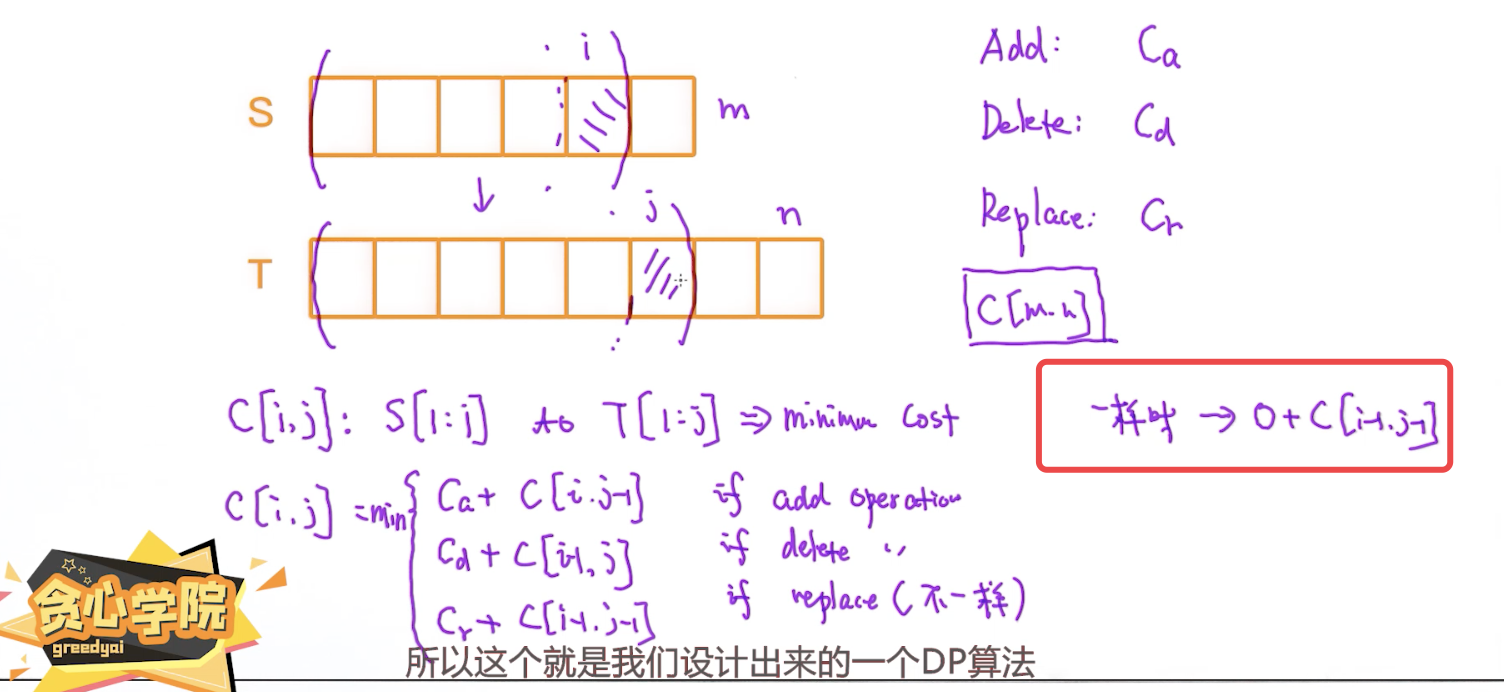 i
S
m
j
n
T
Add: Ca
Delete: Cd
Replace: Cr
C[m.n]
C[i,j]: S[1:i] to T[1:j] ⇒ minimum cost
一样时 → 0 + C[i-1.j-1]
C[i.j] = min{
Ca + C[i.j-1] if add operation
Cd + C[i-1,j] if delete 〃
Cr + C[i-1.j-1] if replace (不一样)
贪心学院
greedyai
所以这个就是我们设计出来的一个DP算法